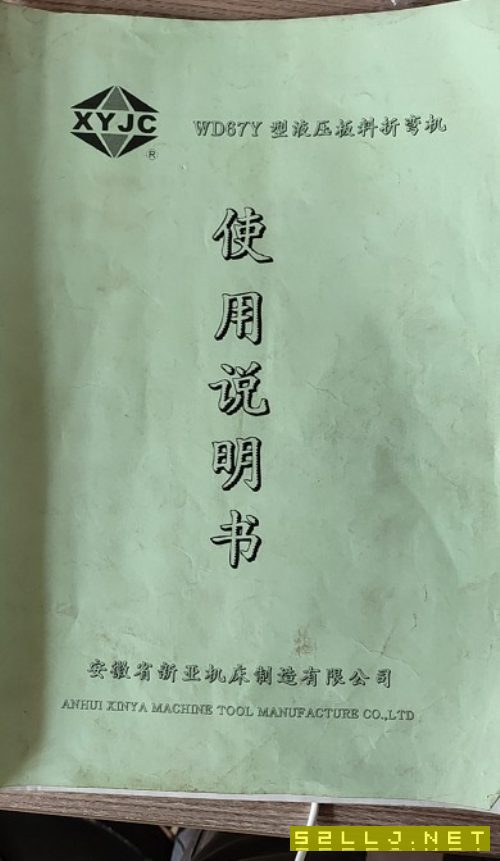 XYJC
®
WD67Y 型液压板料折弯机
使
用
说
明
书
安徽省新亚机床制造有限公司
ANHUI XINYA MACHINE TOOL MANUFACTURE CO.,LTD
52LLJ.NET